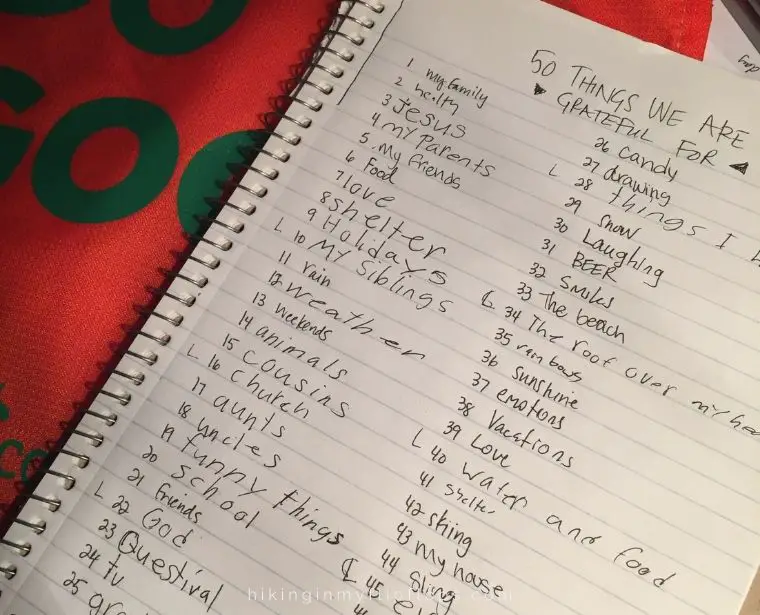 GO
GOO
50 THINGS WE ARE
GRATEFUL FOR
1 my family
2 health
3 Jesus
4 my Parents
5. My friends
6 Food
7 love
8 shelter
9 Holidays
L 10 My Siblings
11 rain
12 weather
13 weekends
14 animals
15 cousins
L 16 church
17 aunts
18 uncles
19 funny things
20 School
21 friends
L 22 God
23 Questival
24 tv
25 gr
26 candy
27 drawing
L 28 things I h
29 Snow
30 Laughing
31 BEER
32 Smiles
33 The beach
L 34 The roof over my hea
35 rainbows
36 sunshine
37 emotions
38 Vacations
39 Love
L 40 water and food
41 shelter
42 skiing
43 my house
44 Sling
L 45
hikinginmyflipflops.com